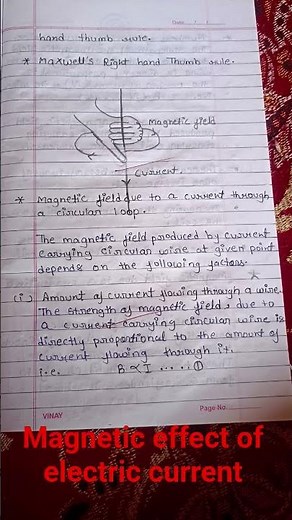 Date
hand thumb rule.
* Maxwell's Right hand Thumb rule.
Magnetic field
Current.
* Magnetic field due to a current through
a circular loop.
The magnetic field produced by current
carrying circular wire at given point
depends on the following factors.
(i) Amount of current flowing through a wire
The strength of magnetic field, due to
a current carrying circular wire is
directly proportional to the amount of
current flowing through it,
i.e. B ∝ I .....①
VINAY
Page No
Magnetic effect of
electric current